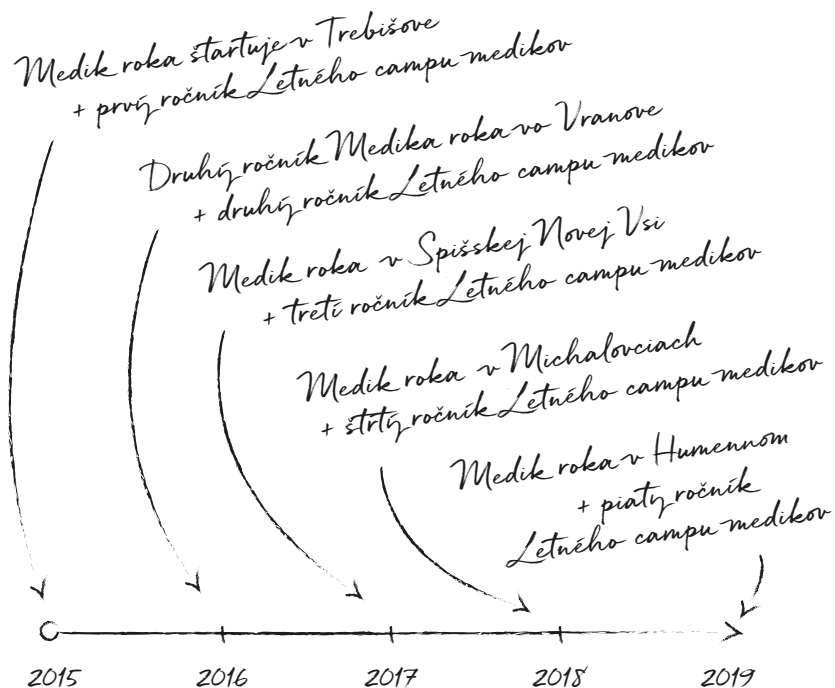 Medik roka štartuje v Trebišove
+ prvý ročník Letného campu medikov
Druhý ročník Medika roka vo Vranove
+ druhý ročník Letného campu medikov
Medik roka v Spišskej Novej Vsi
+ tretí ročník Letného campu medikov
Medik roka v Michalovciach
+ štrtý ročník Letného campu medikov
Medik roka v Humennom
+ piaty ročník
Letného campu medikov
2015 2016 2017 2018 2019